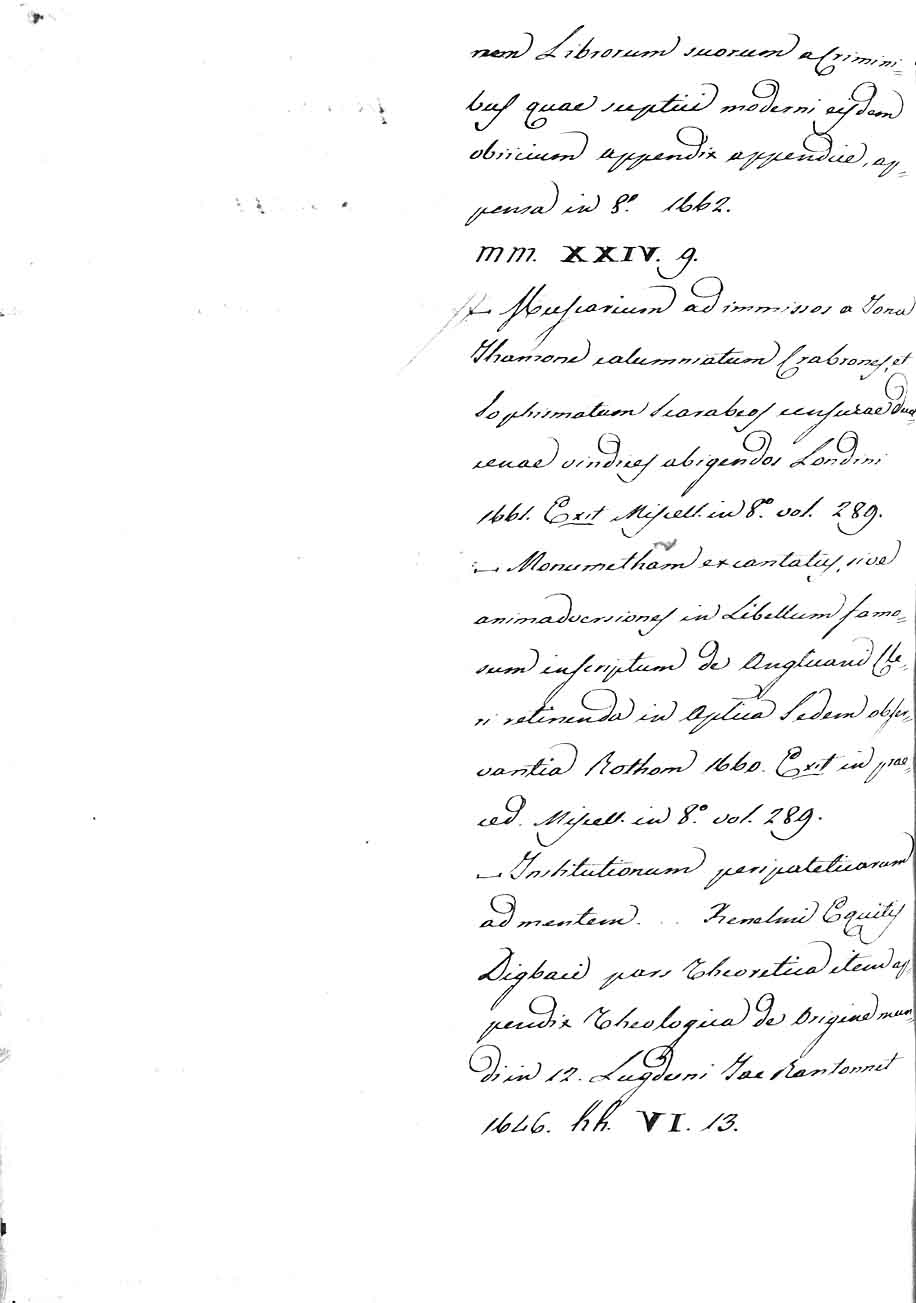 nem Librorum suorum a Crimini=
bus quae sceptici moderni eisdem
obiicium appendix appendice, ap=
pensa in 8.º 1662.
mm. XXIV. 9.
— Muscarium ad immissos a Jona
Thamone calumniatum Crabrones, et
Sophismatum Scarabeos censurae Duа=
cenae vindices abigendos Londini
1661. Exit Miscell. in 8.º vol. 289.
— Monumetham excantatus, sive
animadversiones in Libellum famo=
sum inscriptum de Anglicani Cle=
ri retinenda in Aptica Sedem obser=
vantia Rothom 1660. Exit in prae=
ced. Miscell. in 8.º vol. 289.
— Institutionum peripateticarum
ad mentem ... Kenelmi Equitis
Digbaei pars Theoretica item ap=
pendix Theologica de Origine mun=
di in 12. Lugduni Jac Kantonnet
1646. hh. VI. 13.